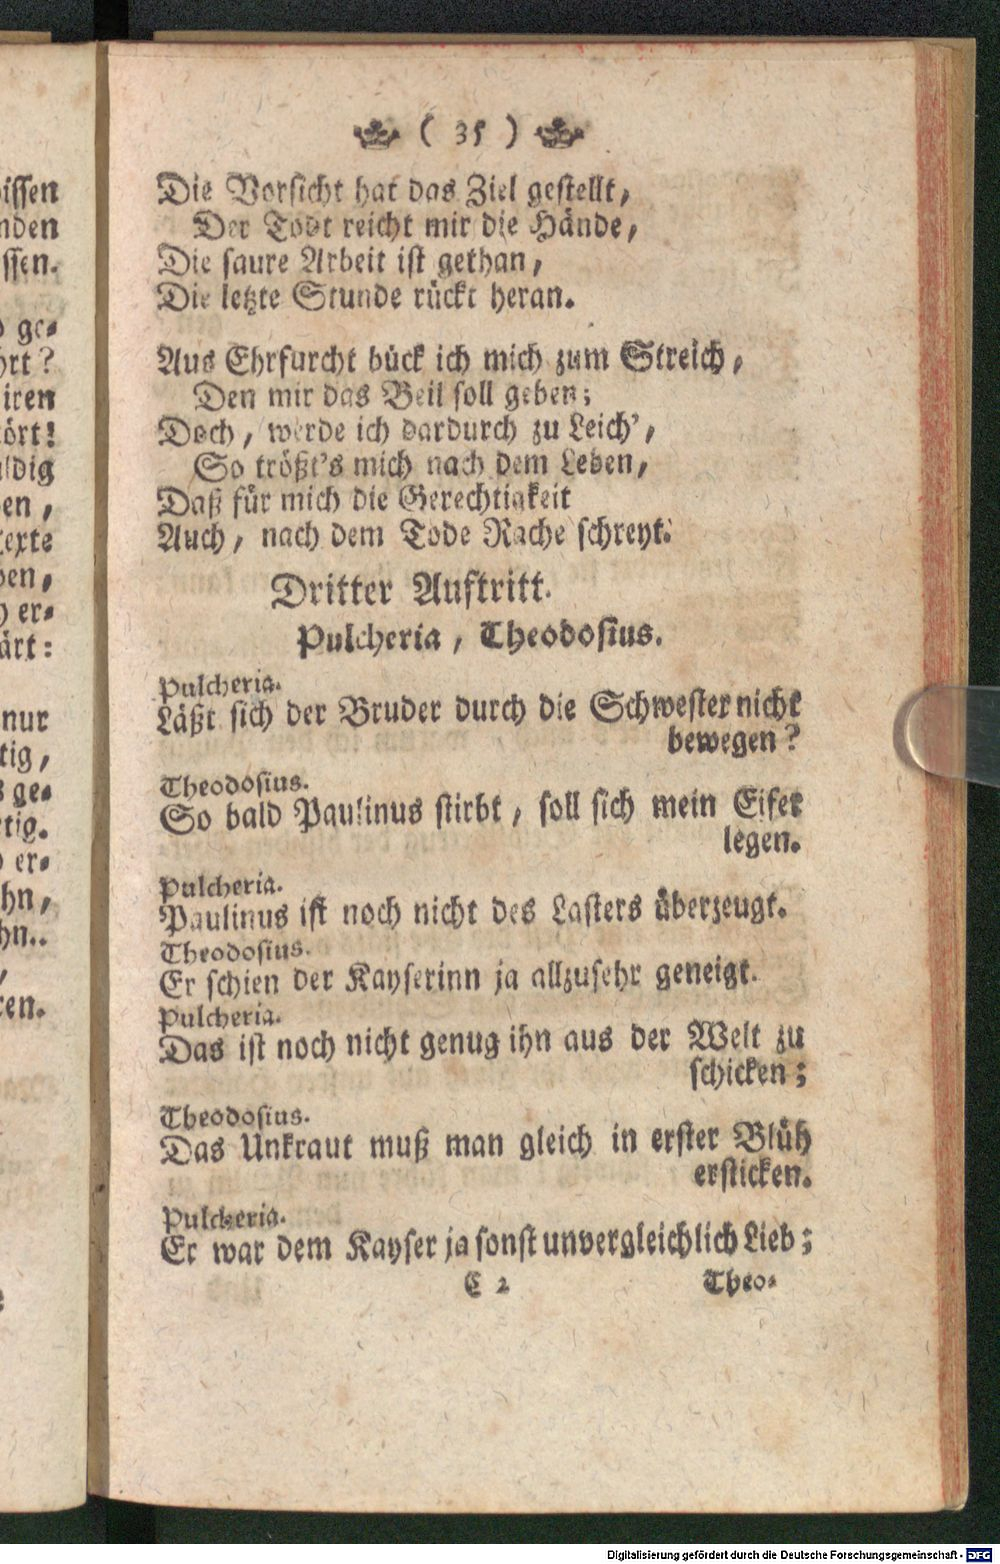 ( 35 )
Die Vorsicht hat das Ziel gestellt,
Der Todt reicht mir die Hände,
Die saure Arbeit ist gethan,
Die letzte Stunde rückt heran.
Aus Ehrfurcht bück ich mich zum Streich,
Den mir das Beil soll geben;
Doch, werde ich dardurch zu Leich',
So tröst't's mich nach dem Leben,
Daß für mich die Gerechtigkeit
Auch, nach dem Tode Rache schreyt.
Dritter Auftritt.
Pulcheria, Theodosius.
Pulcheria.
Läßt sich der Bruder durch die Schwester nicht
bewegen?
Theodosius.
So bald Paulinus stirbt, soll sich mein Eifer
legen.
Pulcheria.
Paulinus ist noch nicht des Lasters überzeugt.
Theodosius.
Er schien der Kayserinn ja allzusehr geneigt.
Pulcheria.
Das ist noch nicht genug ihn aus der Welt zu
schicken;
Theodosius.
Das Unkraut muß man gleich in erster Blüh
ersticken.
Pulcheria.
Er war dem Kayser ja sonst unvergleichlich Lieb;
C 2 Theo-
issen
nden
ssen.
ge-
hrt?
iren
ört!
ldig
en,
texte
ben,
er-
ärt:
nur
tig,
ge-
tig.
er-
hn,
hn..
ren.
Digitalisierung gefördert durch die Deutsche Forschungsgemeinschaft - DFG